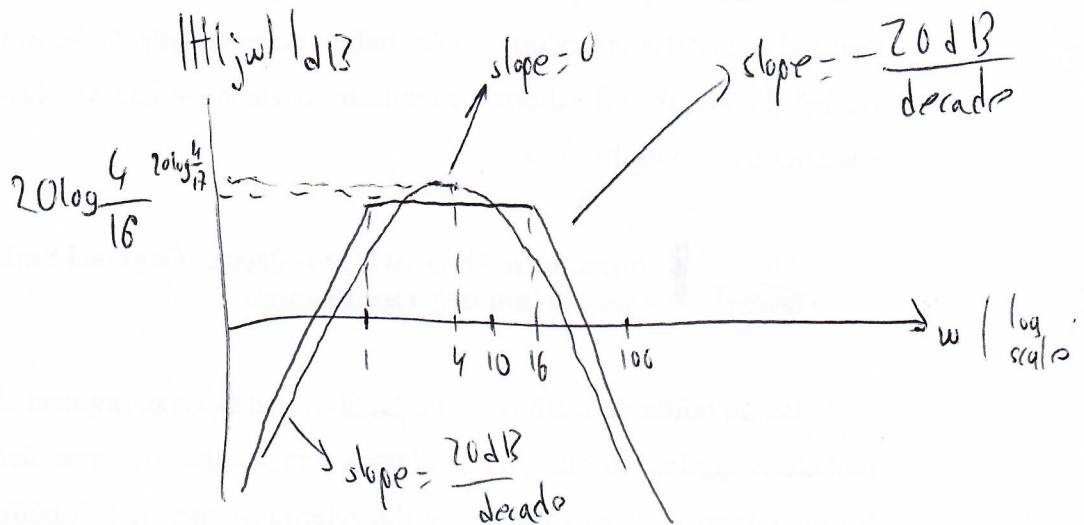 |H(jw)|dB
slope = 0
slope = - 20dB / decade
20log 4/16
20log 4/17
1 4 10 16 100
w (log scale)
slope = 20dB / decade